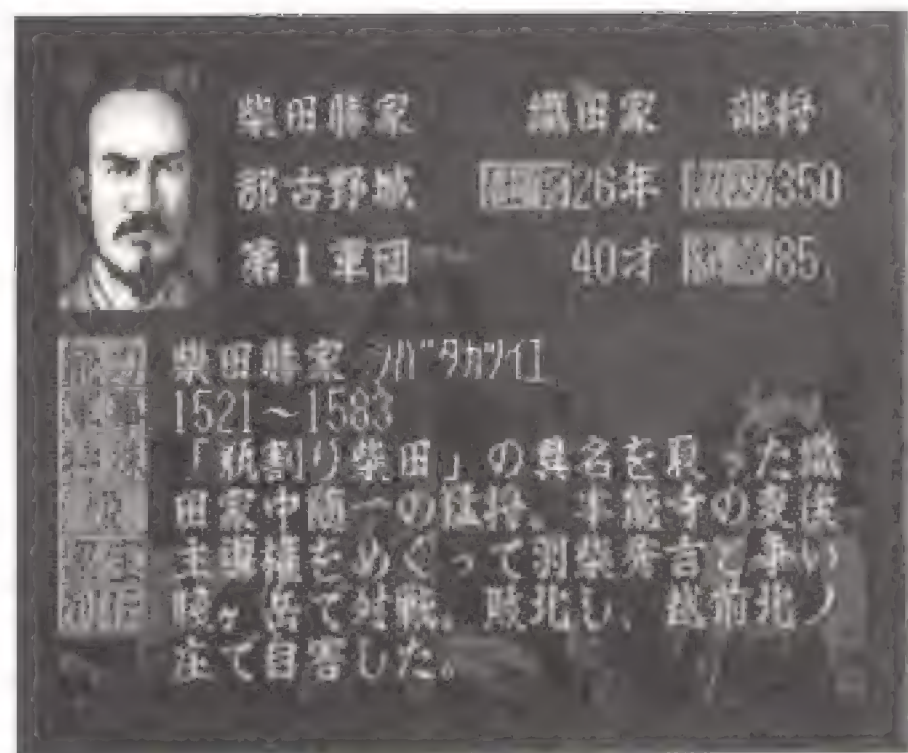 柴田勝家 織田家 部将
那古野城 26年 350
第1軍団 40才 85
柴田勝家 シバタカツイエ
1521～1583
「瓶割り柴田」の異名を取った織
田家中随一の猛将。本能寺の変後
主導権をめぐって羽柴秀吉と争い
賤ヶ岳で対戦。敗北し、越前北ノ
庄で自害した。